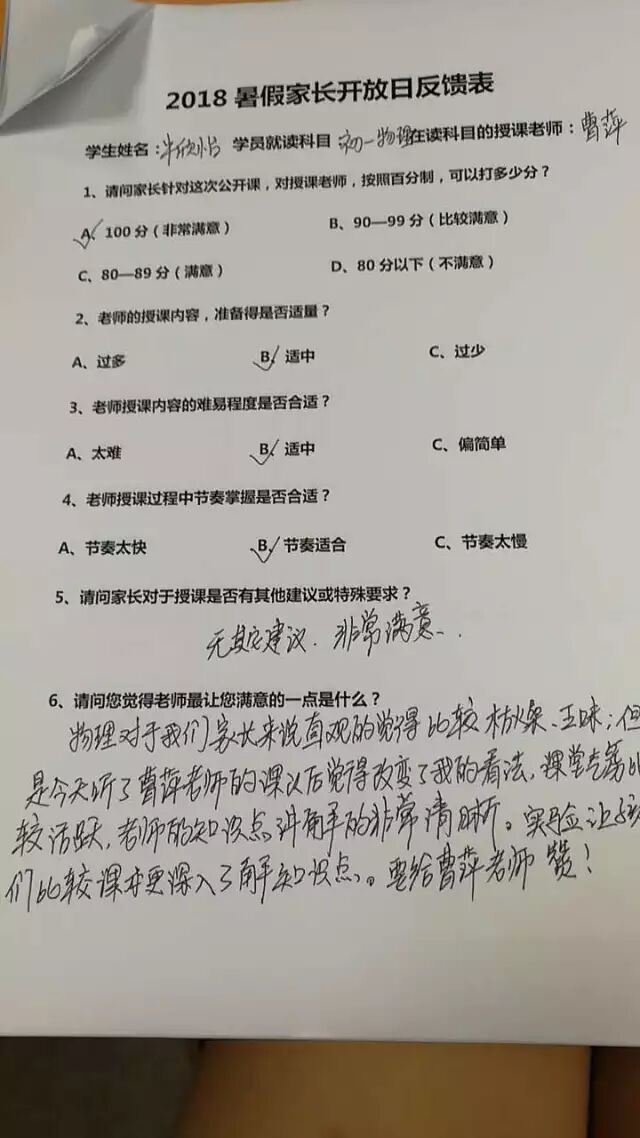 2018暑假家长开放日反馈表
学生姓名：牛欣怡 学员就读科目 初一物理在读科目的授课老师：曹萍
1、请问家长针对这次公开课，对授课老师，按照百分制，可以打多少分？
A、100分（非常满意） B、90—99分（比较满意）
C、80—89分（满意） D、80分以下（不满意）
2、老师的授课内容，准备得是否适量？
A、过多 B、适中 C、过少
3、老师授课内容的难易程度是否合适？
A、太难 B、适中 C、偏简单
4、老师授课过程中节奏掌握是否合适？
A、节奏太快 B、节奏适合 C、节奏太慢
5、请问家长对于授课是否有其他建议或特殊要求？
无其它建议．非常满意．
6、请问您觉得老师最让您满意的一点是什么？
物理对于我们家长来说直观的觉得比较枯燥、乏味；但
是今天听了曹萍老师的课以后觉得改变了我的看法，课堂气氛比
较活跃，老师的知识点讲解的非常清晰。实验让孩
们比较课本更深入了解知识点。要给曹萍老师 赞！